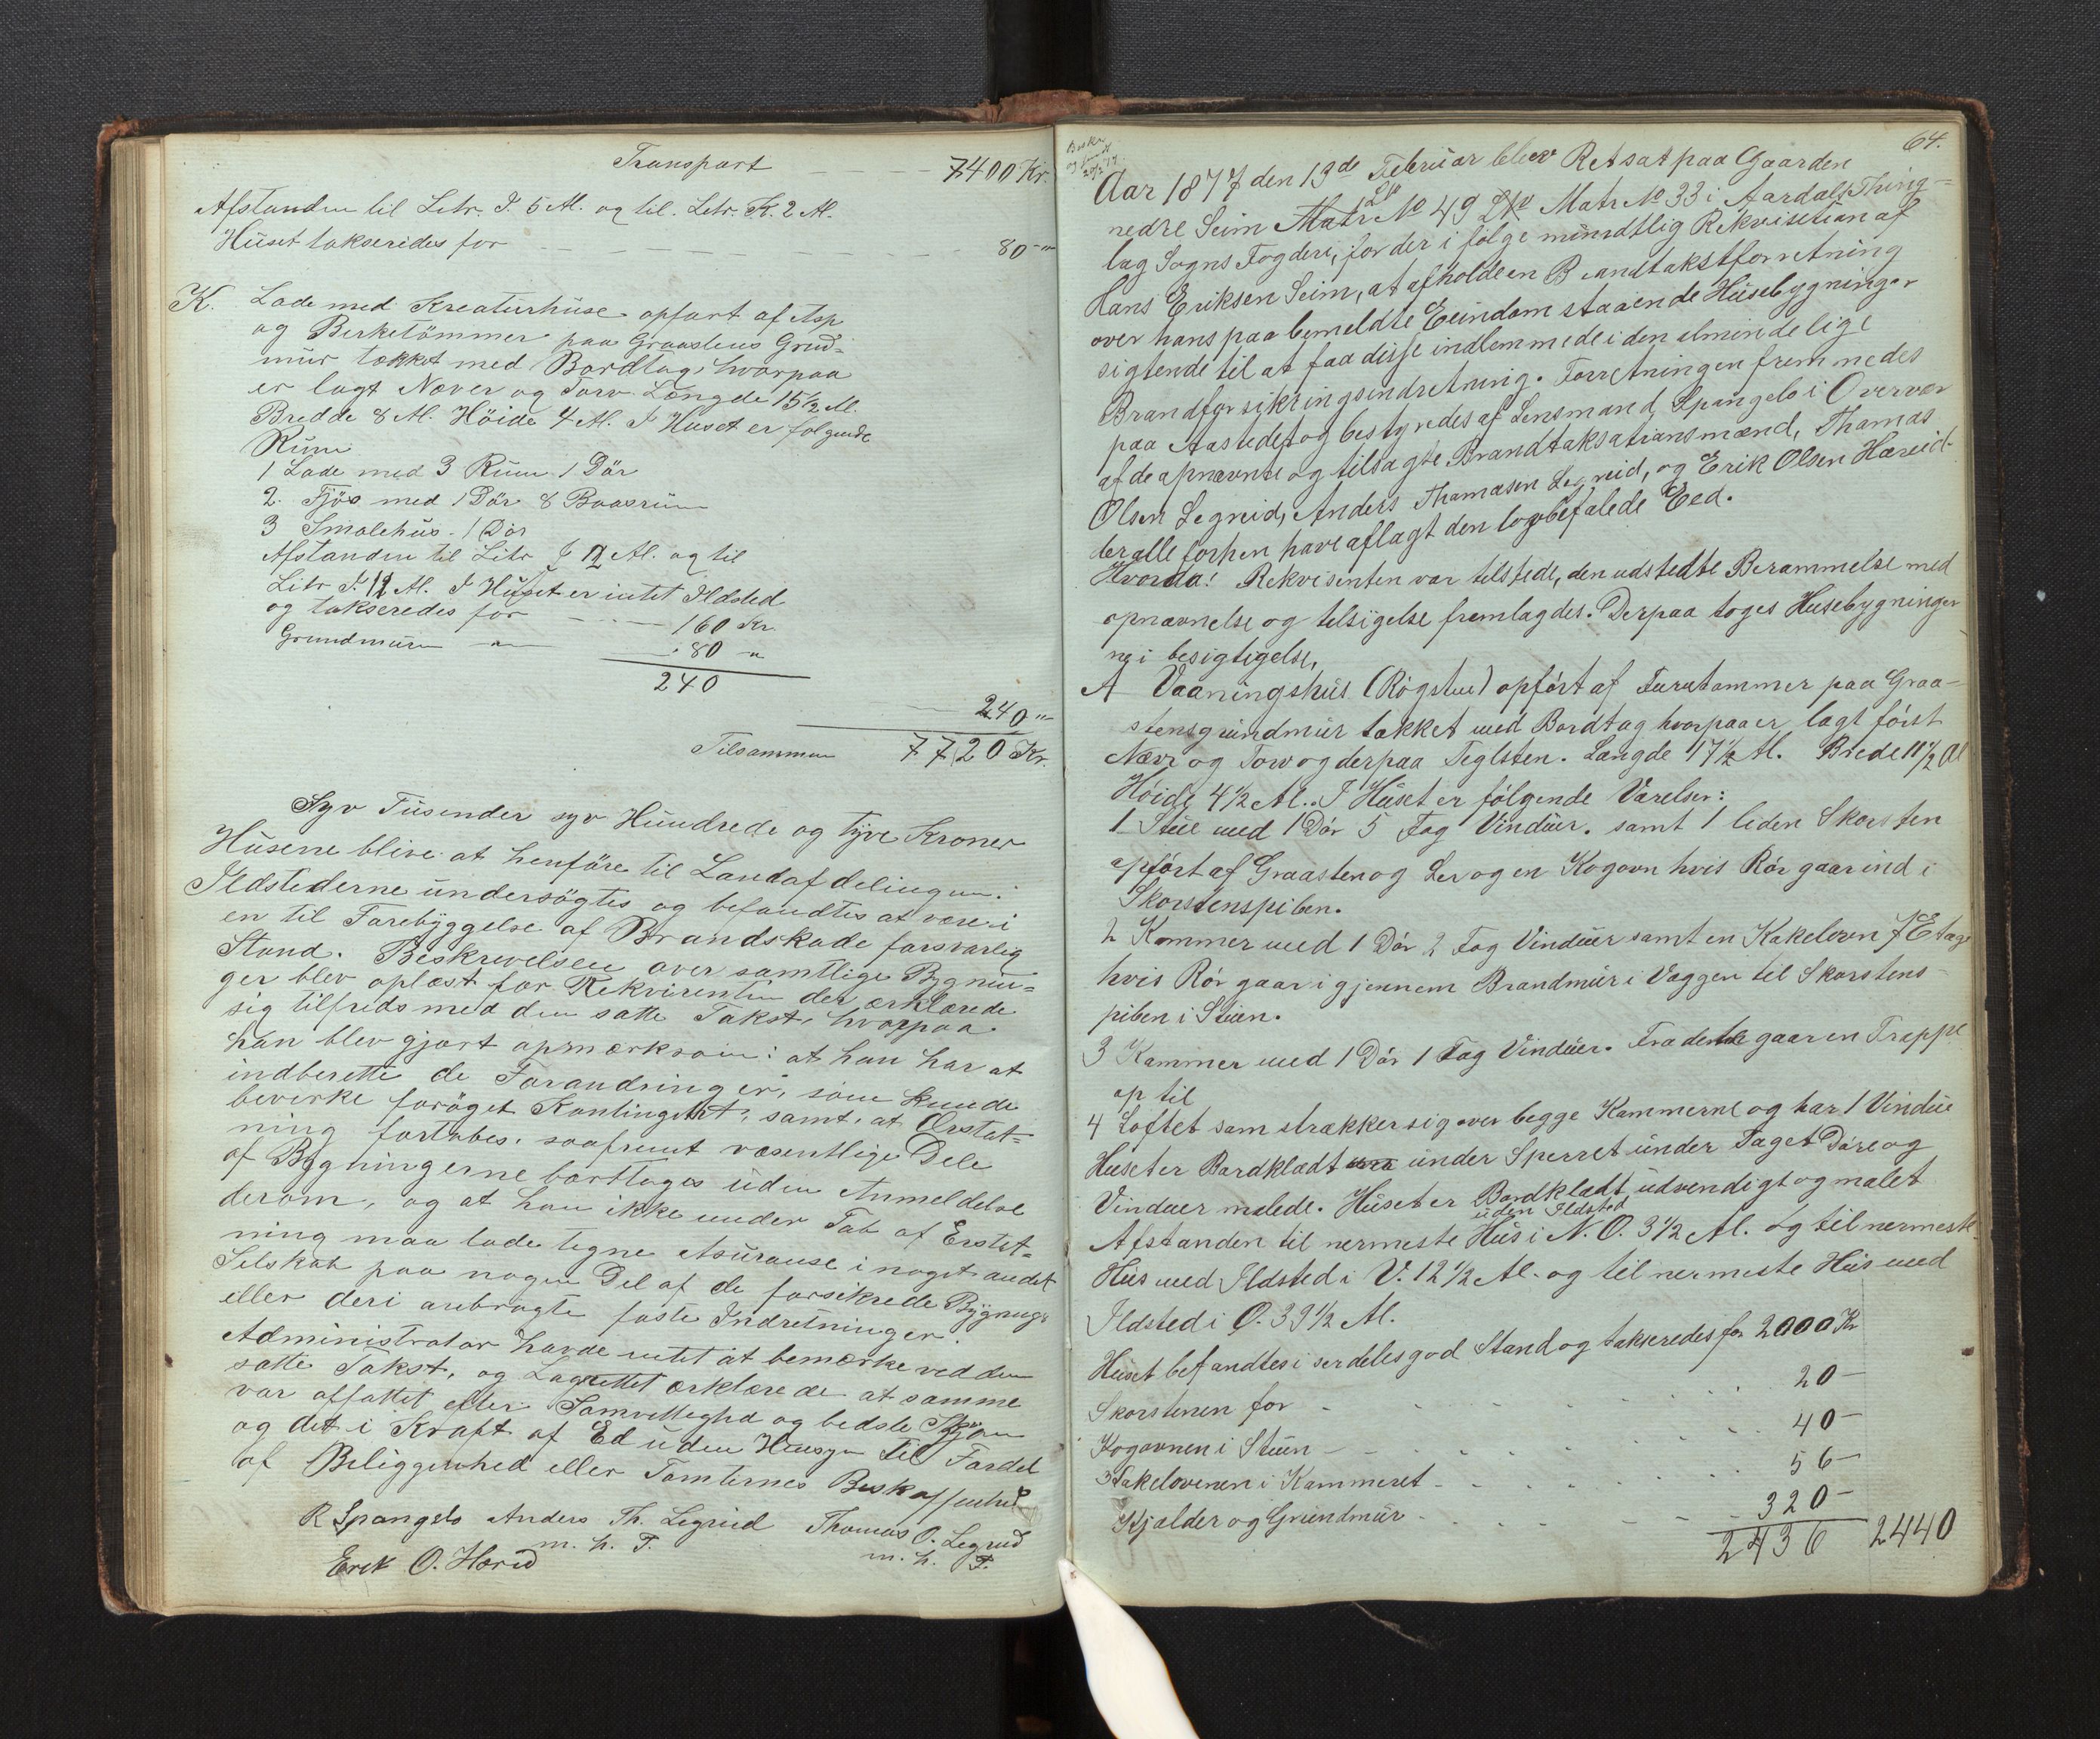 Transport — — — 7400 Kr.
Afstanden til Litr. I. 5 Al. og til. Litr. K. 2 Al.
Huset takseredes for — — — — — — 80 - "
K. Lade med Kreaturhuse opført af Asp
og Berketömmer paa Graastens Grud=
mur tækket med Bordtag, hvorpaa
er lagt Næver og Torv Længde 15½ Al.
Bredde 8 Al. Höide 4 Al. I Huset er følgende
Rum
1 Lade med 3 Rum 1 Dör
2. Fjös med 1 Dör 8 Baasrum
3 Smalehus. 1 Dör
Afstanden til Litr 12 Al. og til
Litr I. 12 Al. I Huset er intet Ildsted
og takseredes for — — — 160 Kr
Grundmuren — " — — 80 - "
240
240 "
Tilsammen 7720 Kr.
Syv Tusender syv Hundrede og tyve Kroner
Husene blive at henføre til Landafdelingen.
Ildstederne undersögtes og befandtes at være i
en til Forebyggelse af Brandskade forsvarlig
Stand. Beskrivelsen over samtlige Bygnin=
ger blev oplæst for Rekvirenten der erklærede
sig tilfreds med den satte Takst, hvorpaa
han blev gjort opmærksom: at han har at
indberette de Forandringer, som kunde
bevirke foröget Kontingent, samt, at Erstat=
ning fortabes, saafremt væsentlige Dele
af Bygningerne borttages uden Anmeldelse
derom, og at han ikke under Tab af Erstat=
ning maa lade tegne Assuranse i noget andet
Selskab paa nogen Del af de forsikrede Bygnng
eller deri anbragte faste Indretninger.
Administrator havde intet at bemærke ved den
satte Takst, og Lagrettet erklærede at samme
var affattet efter Samvittighd og bedste Skjøn
og det i Kraft af Ed uden Hensyn til Fordel
af Beliggenhed eller Tomternes Beskaffenhed
R Spangelo Anders Th. Legreid Thomas O. Legreid
m. h. P. m. h. P.
Erik O. Hæreid
64.
Aar 1877 den 13de Februar blev Ret sat paa Gaarden
nedre Seim Matr LNo No 49 LNo Matr No 33 i Aardals Thing-
lag Sogns Fogderi, for der i følge mundtlig Rekvisetion af
Hans Eriksen Seim, at afholde en Brandtakstforretning
over hans paa bemeldte Eeindom staaende Husebygninger
sigtende til at faa disse indlemmede i den almindelige
Brandforsikringsindretning. Forretningen fremmedes
paa Aastedet og bestyredes af Lensmand Spangelo i Overvær
af de opnævnte og tilsagte Brandtaksationsmænd, Thomas
Olsen Legreid, Anders Thomasen Legreid, og Erik Olsen Hæreid
der alle forhen have aflagt den lovbefalede Eed.
Hvorda! Rekvisenten var tilstede, den udstedte Berammelse med
opnævnelse og tilsigelse fremlagdes. Derpaa toges Husebygninger
ne i besigtigelse,
A Vaaningshus (Rögstue) opført af Furutømmer paa Graa-
stensgrundmur tækket med Bordtag hvorpaa er lagt först
Nævr og Torv og derpaa Teglsten. Længde 17½ Al. Brede 11½ Al
Höide 4½ Al. I Huset er følgende Værelser:
1 Stue med 1 Dör 5 Fag Vinduer. samt 1 liden Skorsten
opfört af Graasten og Ler og en Kogovn hvis Rör gaar ind i
Skorstenspiben.
2 Kammer med 1 Dör 2 Fag Vinduer samt en Kakelovn Etage
hvis Rör gaar igjennem Brandmur i Væggen til Skorstens-
piben i Stuen.
3 Kammer med 1 Dör 1 Fag Vinduer. Fra dette gaar en Trappe
op til
4 Loftet som strækker sig over begge Kammerne og har 1 Vindue
Huset er Bordklædt under Sperret under Taget Döre og
Vinduer malede. Huset er Bordklædt udvendigt og malet
Afstanden til nermeste Hus uden Ildsted i N. O. 3½ Al. og til nermeste
Hus med Ildsted i V. 12½ Al. og til nermeste Hus med
Ildsted i O. 39½ Al.
Huset befandtes i serdeles god Stand og takseredes for 2000 Kr
Skorstenen for - - - - - - 20 —
Kogovnen i Stuen - - - - - - 40 —
Kakelovenen i Kammeret - - - - - 56 —
Kjælder og Grundmur - - - - - 320 —
2436 2440